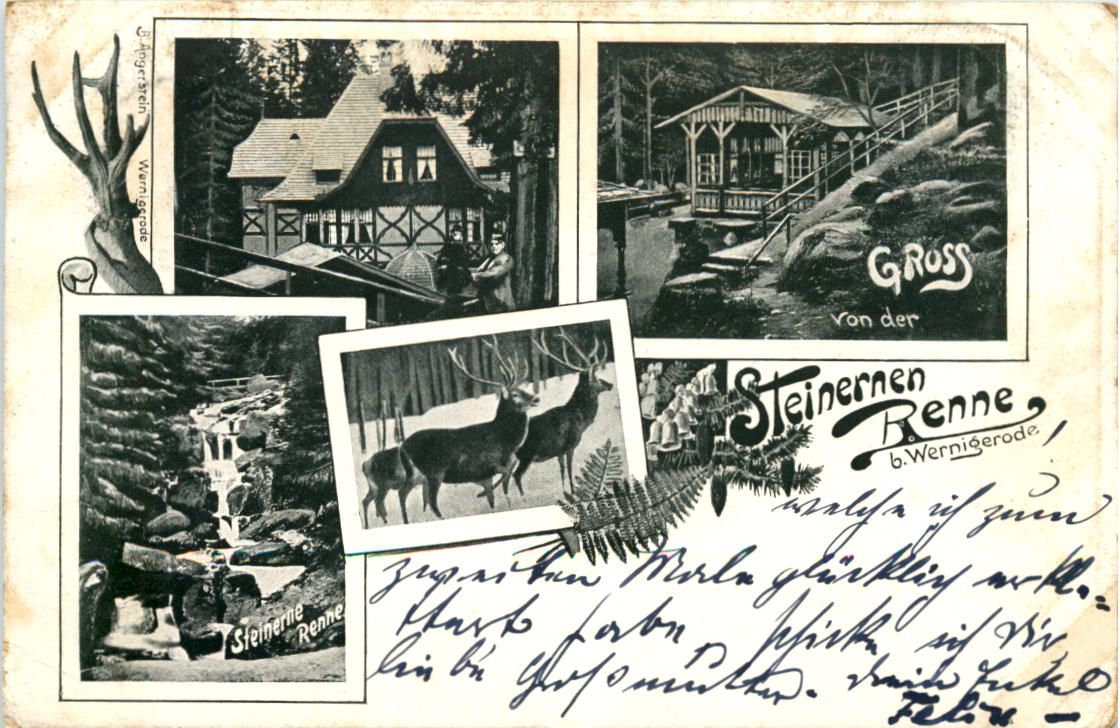 B. Angerstein Wernigerode
GROSS
von der
Steinernen
Renne
b. Wernigerode
Steinerne
Renne
!
welche ich zum
zweiten Male glücklich erkle-
ttert habe, schicke ich Dir
liebe Großmutter. Dein Enkel
Felix